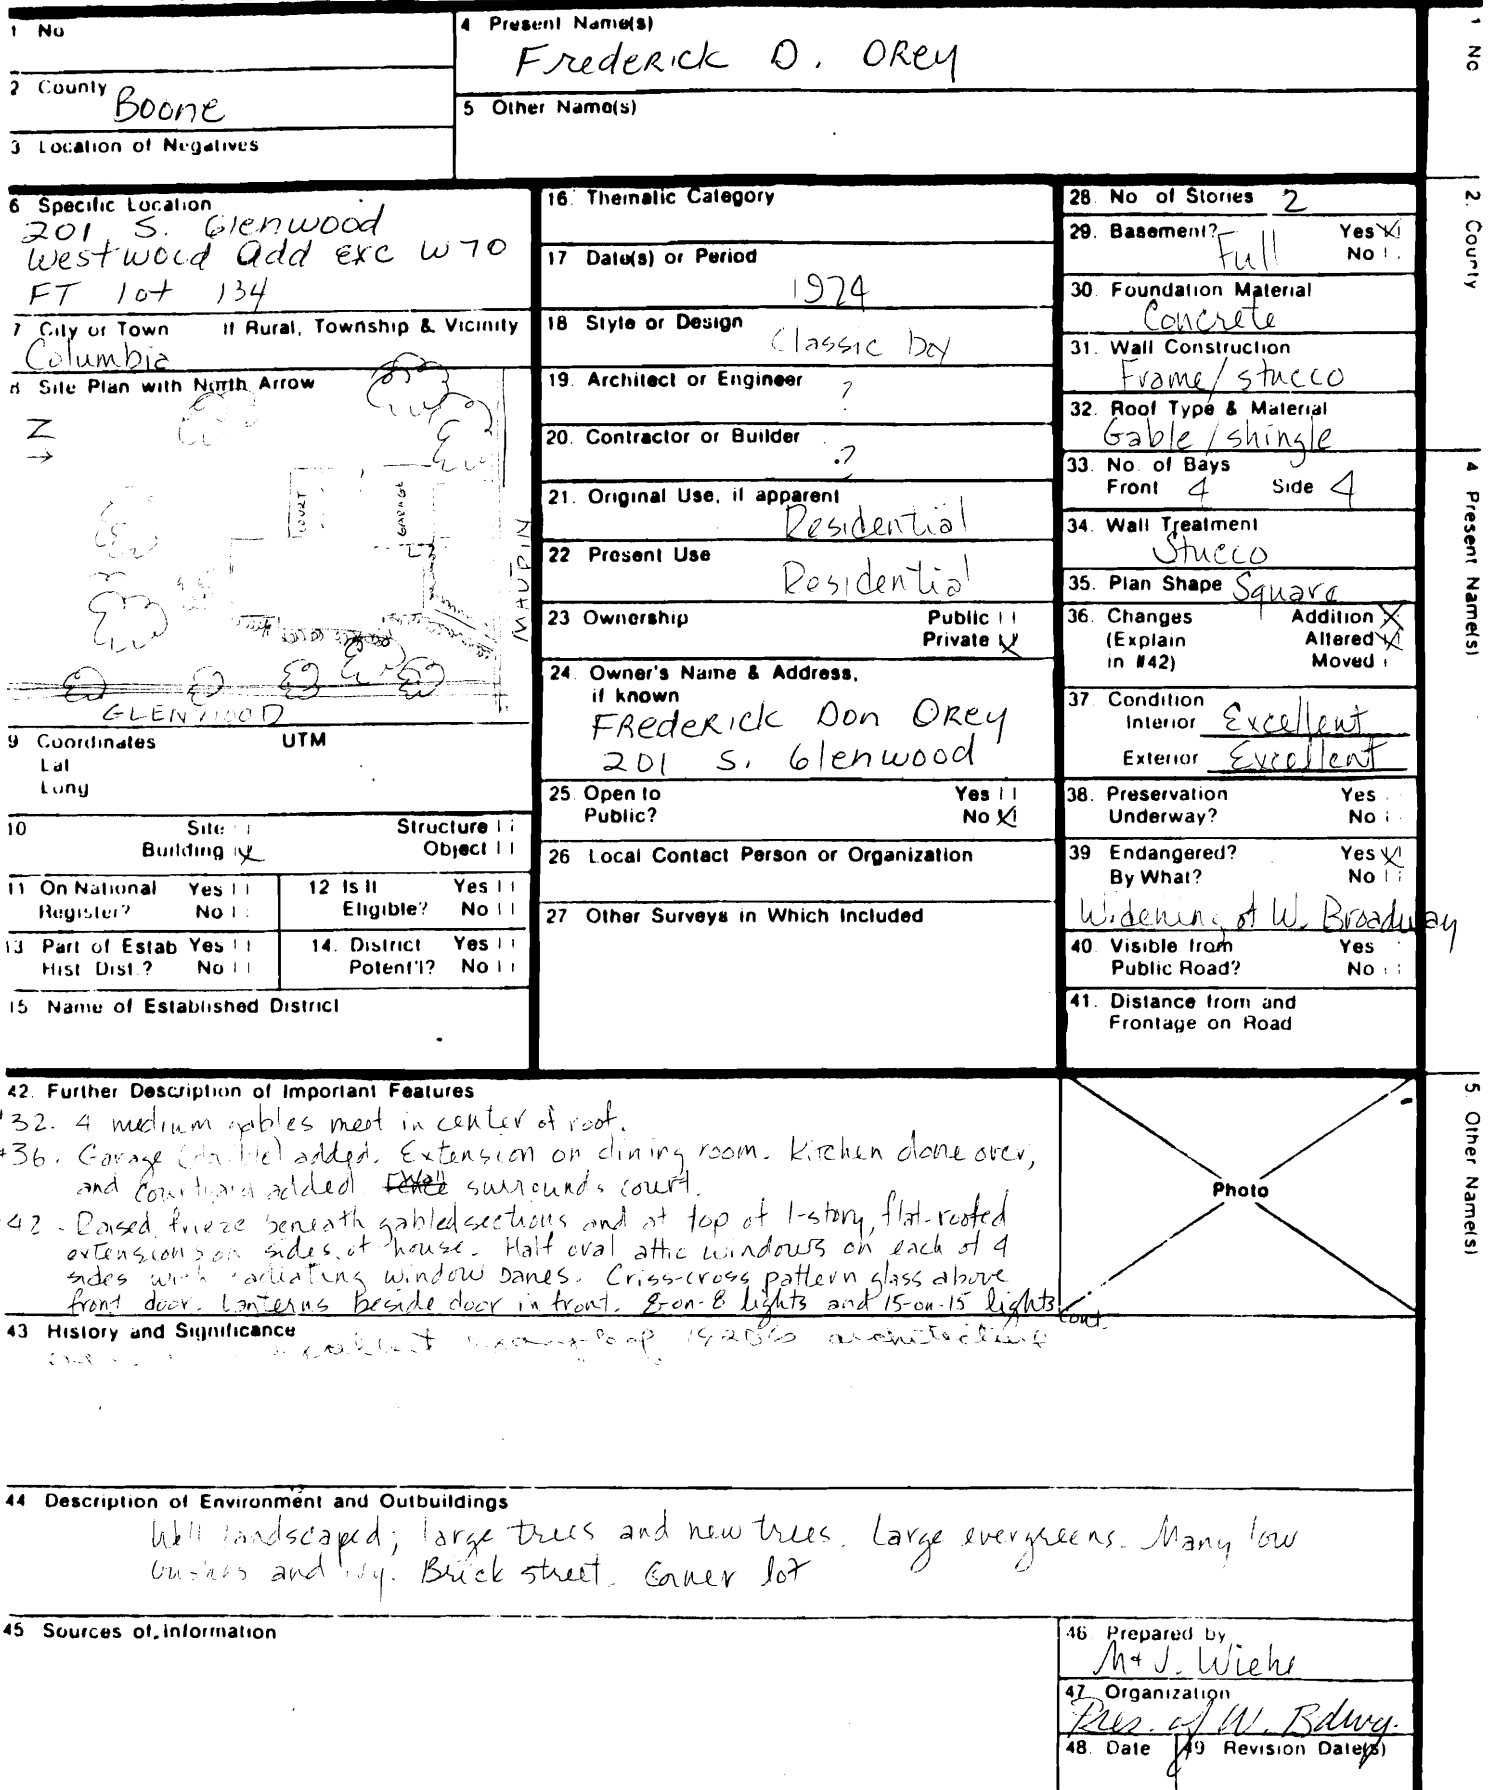 1 No
4 Present Name(s)
Frederick D. Orey
2 County
Boone
5 Other Name(s)
3 Location of Negatives
6 Specific Location
201 S. Glenwood
Westwood Add exc W 70
FT lot 134
7 City or Town If Rural, Township & Vicinity
Columbia
8 Site Plan with North Arrow
N
COURT
GARAGE
MAUPIN
GLENWOOD
9 Coordinates UTM
Lat
Long
10 Site Structure
Building X Object
11 On National Register? Yes No
12 Is It Eligible? Yes No
13 Part of Estab Hist Dist.? Yes No
14. District Potent'l? Yes No
15 Name of Established District
16. Thematic Category
17 Date(s) or Period
1924
18 Style or Design
Classic
19. Architect or Engineer
?
20. Contractor or Builder
?
21. Original Use, if apparent
Residential
22 Present Use
Residential
23 Ownership Public
Private X
24 Owner's Name & Address,
if known
Frederick Don Orey
201 S. Glenwood
25. Open to Yes
Public? No X
26 Local Contact Person or Organization
27 Other Surveys in Which Included
28. No of Stories 2
29. Basement? Yes X
Full No
30 Foundation Material
Concrete
31. Wall Construction
Frame/stucco
32. Roof Type & Material
Gable/shingle
33. No. of Bays
Front 4 Side 4
34. Wall Treatment
Stucco
35. Plan Shape Square
36. Changes Addition X
(Explain Altered X
in #42) Moved
37. Condition
Interior Excellent
Exterior Excellent
38. Preservation Yes
Underway? No
39 Endangered? Yes X
By What? No
Widening of W. Broadway
40. Visible from Yes
Public Road? No
41. Distance from and
Frontage on Road
42. Further Description of Important Features
#32. 4 medium gables meet in center of roof.
#36. Garage (double) added. Extension on dining room. Kitchen done over,
and courtyard added. surrounds court.
42. Raised frieze beneath gabled sections and at top of 1-story, flat-roofed
extensions on sides of house. Half oval attic windows on each of 4
sides with radiating window panes. Criss-cross pattern glass above
front door. Lanterns beside door in front. 8-on-8 lights and 15-on-15 lights
cont.
Photo
43 History and Significance
1920's architecture
44 Description of Environment and Outbuildings
Well landscaped; large trees and new trees. Large evergreens. Many low
bushes and ivy. Brick street. Corner lot
45 Sources of Information
46 Prepared by
M & J. Wiehe
47 Organization
Pres. of W. Bdwy.
48. Date 49 Revision Date(s)
1 No
2. County
4 Present Name(s)
5. Other Name(s)